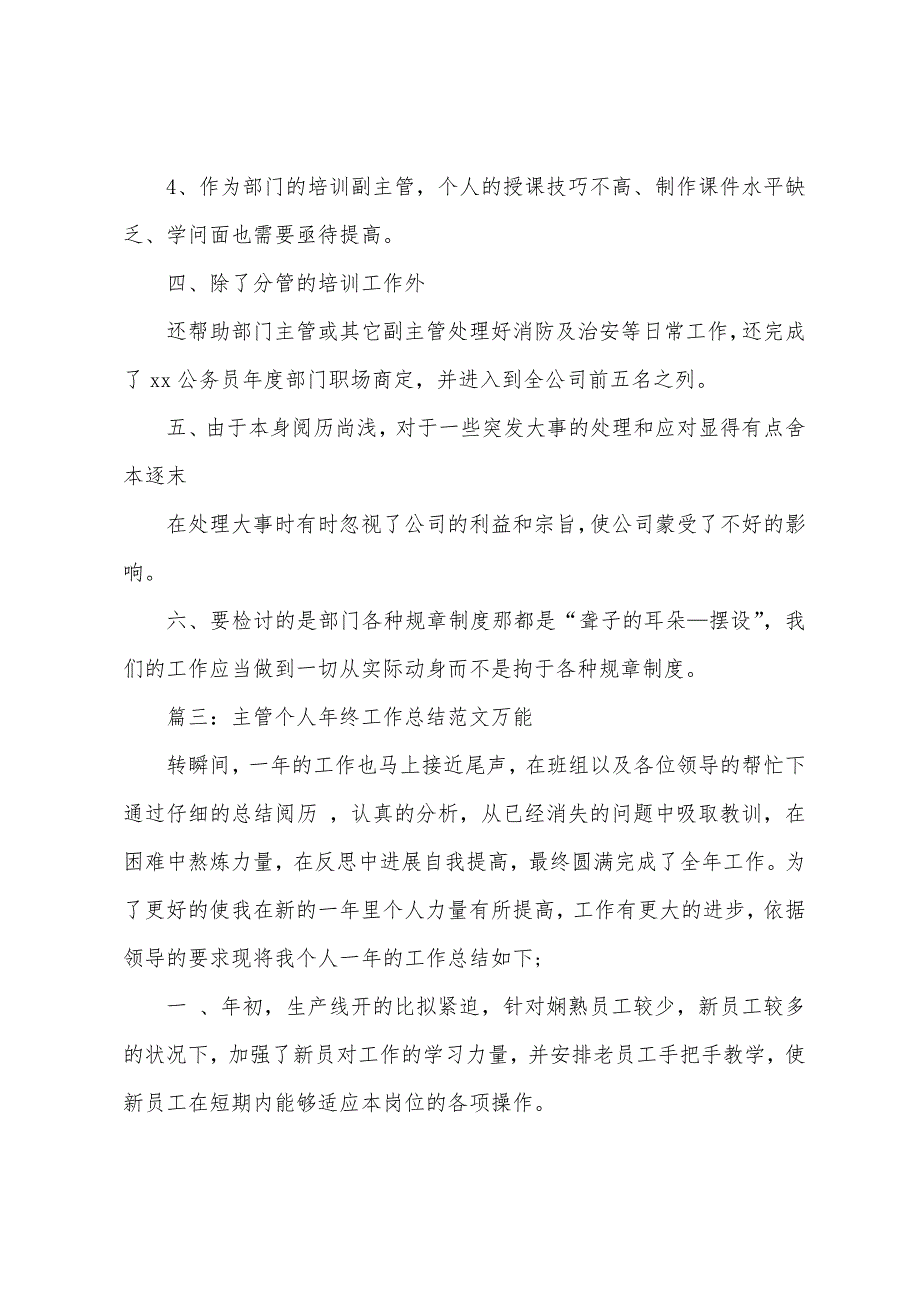 4、作为部门的培训副主管，个人的授课技巧不高、制作课件水平缺
乏、学问面也需要亟待提高。
四、除了分管的培训工作外
还帮助部门主管或其它副主管处理好消防及治安等日常工作，还完成
了 xx 公务员年度部门职场商定，并进入到全公司前五名之列。
五、由于本身阅历尚浅，对于一些突发大事的处理和应对显得有点舍
本逐末
在处理大事时有时忽视了公司的利益和宗旨，使公司蒙受了不好的影
响。
六、要检讨的是部门各种规章制度那都是“聋子的耳朵—摆设”，我
们的工作应当做到一切从实际动身而不是拘于各种规章制度。
篇三：主管个人年终工作总结范文万能
转瞬间，一年的工作也马上接近尾声，在班组以及各位领导的帮忙下
通过仔细的总结阅历 ，认真的分析，从已经消失的问题中吸取教训，在
困难中熬炼力量，在反思中进展自我提高，最终圆满完成了全年工作。为
了更好的使我在新的一年里个人力量有所提高，工作有更大的进步，依据
领导的要求现将我个人一年的工作总结如下；
一 、年初，生产线开的比拟紧迫，针对娴熟员工较少，新员工较多
的状况下，加强了新员对工作的学习力量，并安排老员工手把手教学，使
新员工在短期内能够适应本岗位的各项操作。